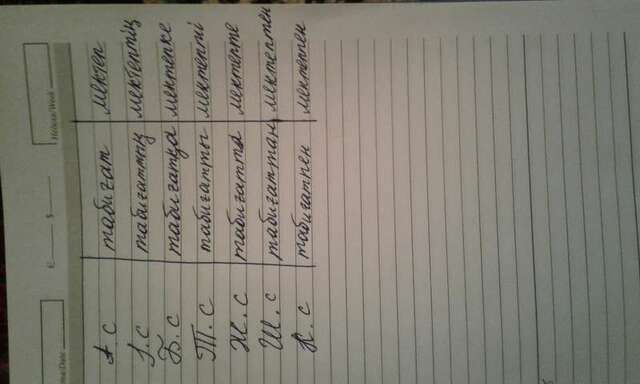 ma/Date
€ $
Неделя/Week
А.с табиғат мектеп
І.с табиғаттың мектептің
Б.с табиғатқа мектепке
Т.с табиғатты мектепті
Ж.с табиғатта мектепте
Ш.с табиғаттан мектептен
К.с табиғатпен мектеппен